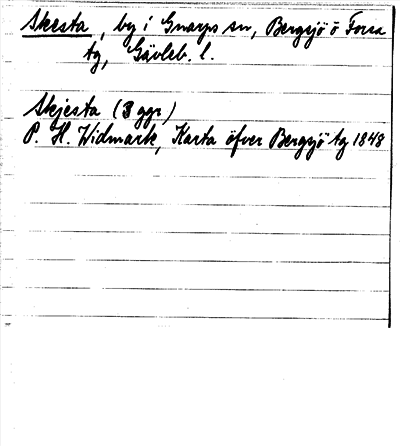 Skesta, by i Gnarps sn, Bergsjö o Forsa
tg, Gävleb. l.
Skjesta (3 ggr)
P. H. Widmark, Karta öfver Bergsjö tg 1848